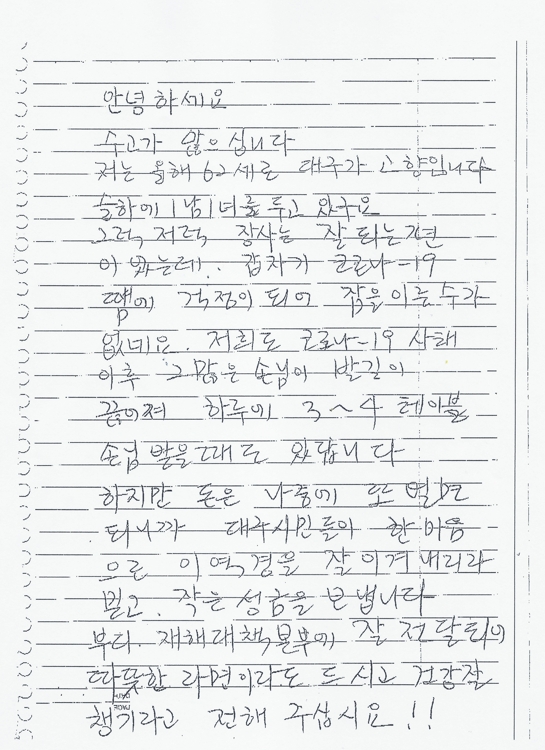 안녕하세요
수고가 많으십니다
저는 올해 62세로 대구가 고향입니다
슬하에 1남 1녀를 두고 있구요
그럭 저럭 장사는 잘 되는 편
이 였는데.. 갑자기 코로나-19
땜에 걱정이 되어 잠을 이룰수가
없네요. 저희도 코로나-19 사태
이후 그 많은 손님이 발길이
끊어져 하루에 3~4 테이블
손님 받을때도 있답니다
하지만 돈은 나중에 또 벌면
되니까 대구시민들이 한마음
으로 이역경을 잘 이겨 내리라
믿고. 작은 성금을 보냅니다
부디. 재해대책본부에 잘 전달되어
따뜻한 라면이라도 드시고 건강잘
챙기라고 전해 주십시요!!